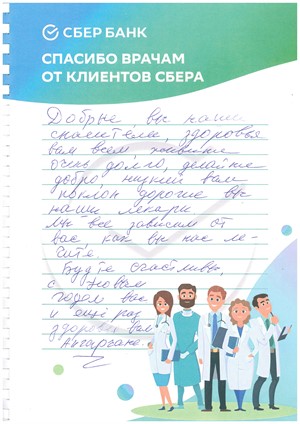 СБЕР БАНК
СПАСИБО ВРАЧАМ
ОТ КЛИЕНТОВ СБЕРА
Добрые, вы наши
спасители, здоровья
вам всем, живите
очень долго, делайте
добро, низкий вам
поклон дорогие вы
наши лекари
мы все зависим от
вас, как вы нас ле-
чите.
Будьте счастливы,
с Новым
годом вас
и ещё раз
вам
Ангарчане.